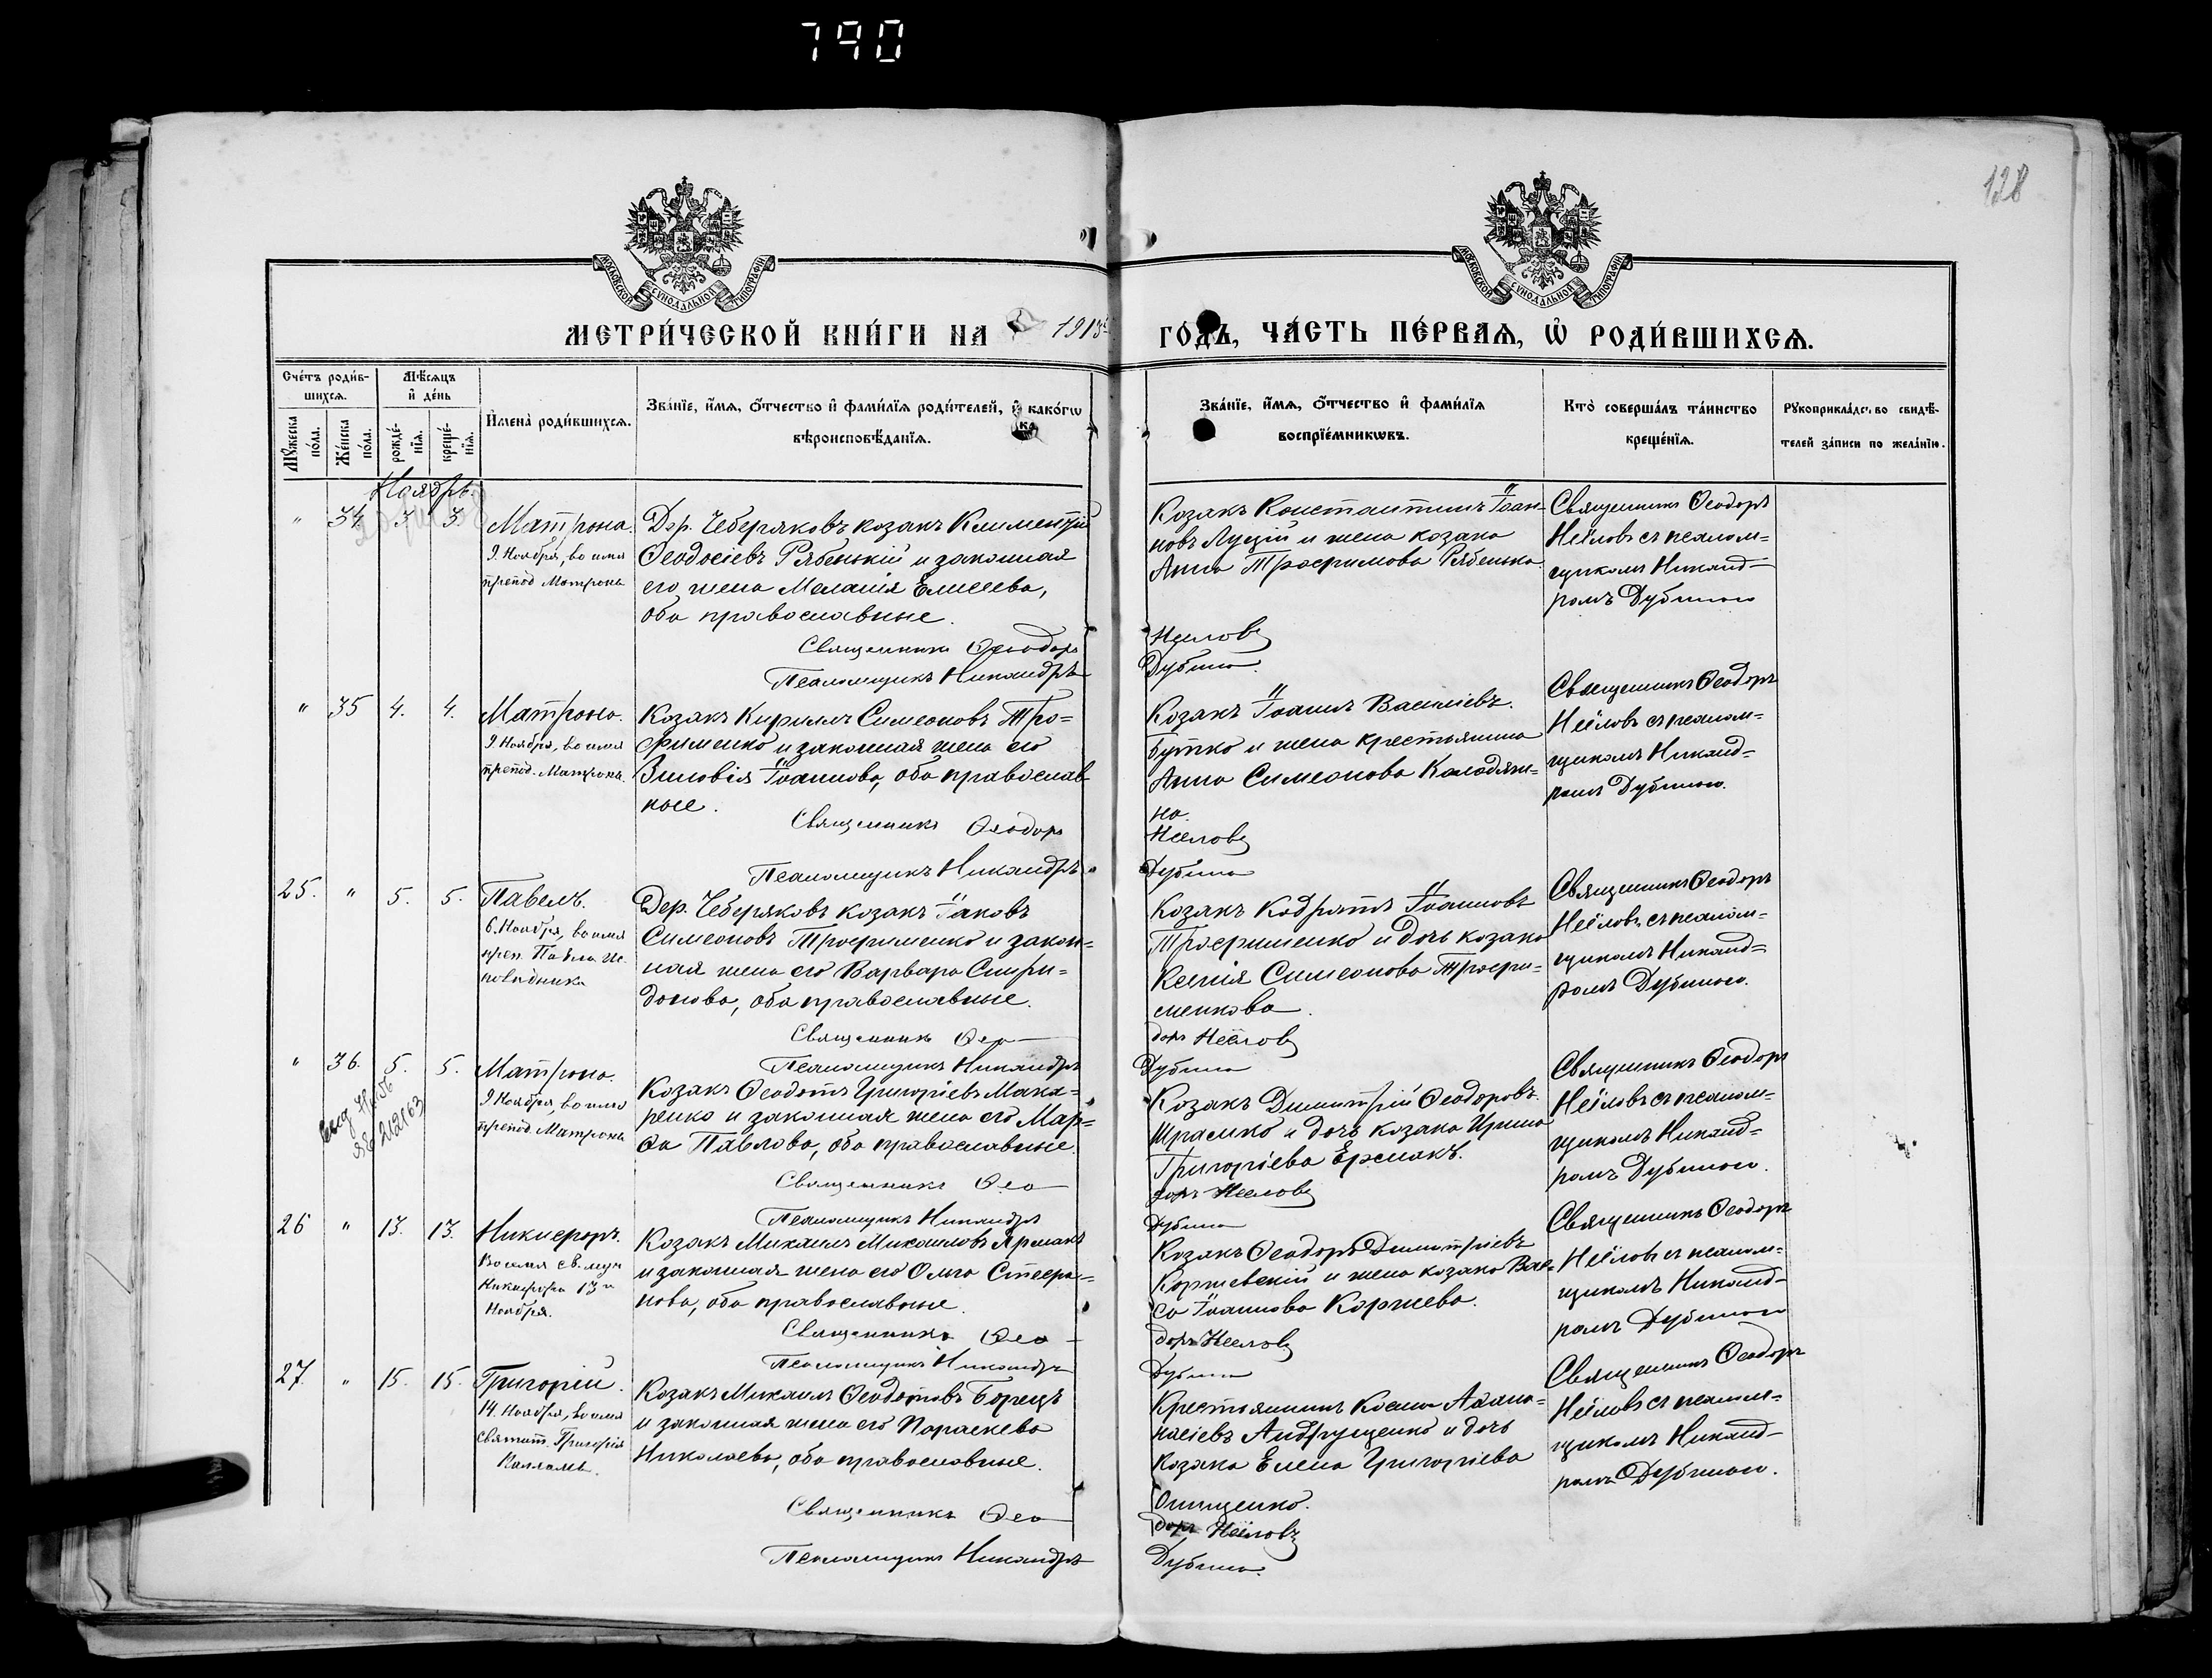 790
128
МОСКОВСКОЙ СѴНОДАЛЬНОЙ ТИПОГРАФІИ
МОСКОВСКОЙ СѴНОДАЛЬНОЙ ТИПОГРАФІИ
МЕТРИ́ЧЕСКОЙ КНИ́ГИ НА 1913
ГО́ДЪ, ЧА́СТЬ ПЕ́РВАЯ, Ѡ҆ РОДИ́ВШИХСЯ.
Сче́тъ роди́в-
шихся.
Мѣ́сяцъ
и҆ де́нь
Мꙋ́жеска
по́ла.
Же́нска
по́ла.
рожде́-
нїя.
креще́-
нїя.
И҆мена̀ роди́вшихся.
Зва́нїе, и҆́мя, ѻ҆́тчество и҆ фами́лїя роди́телей, и҆ како́гѡ
вѣроисповѣ́данїя.
Зва́нїе, и҆́мя, ѻ҆́тчество и҆ фами́лїя
воспрїе́мникѡвъ.
Кто̀ соверша́лъ та́инство
креще́нїя.
Рꙋкоприкла́дство свидѣ́-
телей за́писи по жела́нїю.
Ноябрь.
" 34. 3. 3.
Матрона.
9. Ноября, во имя
препод. Матроны
Дер. Чеберяковъ козакъ Климентій
Ѳеодосіевъ Рябенькій и законная
его жена Меланія Елисеева,
оба православные.
Священникъ Ѳеодоръ
Псаломщикъ Никандръ
Козакъ Константинъ Іоан-
новъ Луцій и жена козака
Анна Трофимова Рябенька
Неёловъ
Дубина.
Священникъ Ѳеодоръ
Неёловъ съ псалом-
щикомъ Никанд-
ромъ Дубиною
" 35 4. 4.
Матрона.
9. Ноября, во имя
препод. Матроны.
Козакъ Кириллъ Симеоновъ Тро-
фименко и законная жена его
Зиновія Іоаннова, оба православ
ные.
Священникъ Ѳеодоръ
Псаломщикъ Никандръ
Козакъ Іоаннъ Василіевъ
Бутко и жена крестьянина
Анна Симеонова Колодяж-
на.
Неёловъ
Дубина
Священникъ Ѳеодоръ
Неёловъ съ псалом-
щикомъ Никанд-
ромъ Дубиною.
25. " 5. 5.
Павелъ.
6. Ноября, во имя
преп. Павла ис-
поведника
Дер. Чеберяковъ козакъ Іаковъ
Симеоновъ Трофименко и закон-
ная жена его Варвара Спири-
донова, оба православные.
Священникъ Ѳео-
Псаломщикъ Никандръ
Козакъ Кодратъ Іоанновъ
Трофименко и дочь козака
Ксенія Симеонова Трофи-
менкова.
доръ Неёловъ
Дубина
Священникъ Ѳеодоръ
Неёловъ съ псалом-
щикомъ Никанд-
ромъ Дубиною.
" 36. 5. 5.
212163
Матрона.
9 Ноября, во имя
препод. Матроны
Козакъ Ѳеодотъ Григоріевъ Мака-
ренко и законная жена его Мар-
ѳа Павлова, оба православные.
Священникъ Ѳео
Псаломщикъ Никандръ
Козакъ Димитрій Ѳеодоровъ
Шрамко и дочь козака Ирина
Григоріева Ермакъ.
доръ Неёловъ
Дубина
Священникъ Ѳеодоръ
Неёловъ съ псалом-
щикомъ Никанд-
ромъ Дубиною.
26 " 13. 13.
Никифоръ.
Во имя св. муч
Никифора 13го
Ноября.
Козакъ Михаилъ Михаиловъ Ярмакъ
и законная жена его Ольга Стефа-
нова, оба православные.
Священникъ Ѳео-
Псаломщикъ Никандръ
Козакъ Ѳеодоръ Димитріевъ
Коржевскій и жена козака Вас-
са Іоаннова Коржева.
доръ Неёловъ
Дубина
Священникъ Ѳеодоръ
Неёловъ съ псалом-
щикомъ Никанд-
ромъ Дубиною
27. " 15. 15.
Григорій.
14. Ноября, во имя
святит. Григорія
Паламъ.
Козакъ Михаилъ Ѳеодотовъ Борецъ
и законная жена его Параскева
Николаева, оба православные.
Священникъ Ѳео
Псаломщикъ Никандръ
Крестьянинъ Косма Аѳана-
насіевъ Андрущенко и дочь
козака Елена Григоріева
Онищенко.
доръ Неёловъ
Дубина.
Священникъ Ѳеодоръ
Неёловъ съ псалом-
щикомъ Никанд-
ромъ Дубиною.